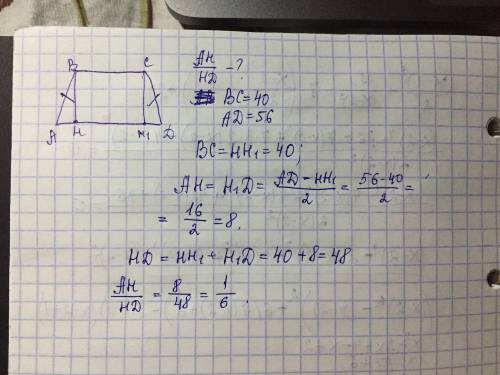 B C
A H H₁ D
AH/HD - ?
BC=40
AD=56
BC=HH₁=40;
AH= H₁D= (AD-HH₁)/2 = (56-40)/2 =
= 16/2 =8.
HD = HH₁ + H₁D = 40+8=48
AH/HD = 8/48 = 1/6.